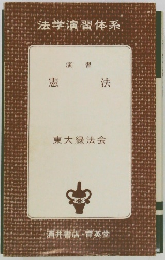 法学演習体系
演習
憲法
東大緑法会
酒井書店・育英堂